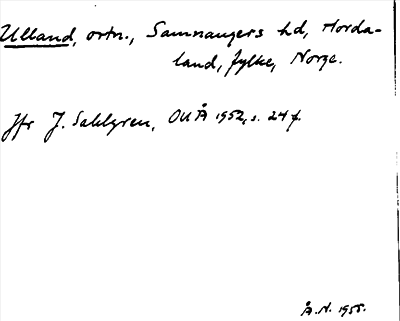 Ulland, ortn., Samnangers hd, Horda-
land, fylke, Norge.
Jfr J. Sahlgren, OUÅ 1952, s. 24 f.
Å. N. 1955.